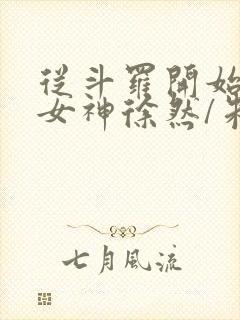 從斗羅開始
女神徐然/朱
七月風流